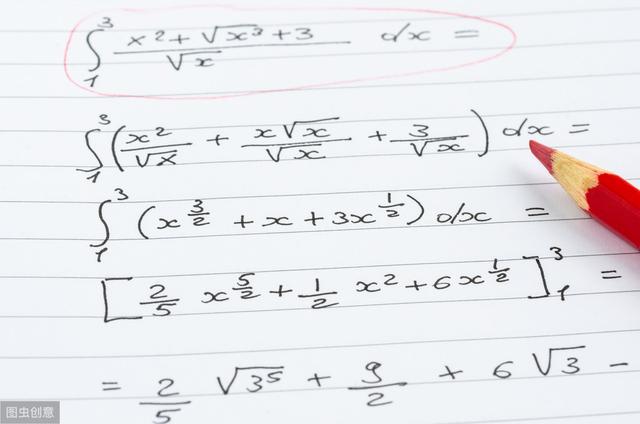 ∫₁³ (x² + √x³ + 3)/√x dx =
∫₁³ (x²/√x + x√x/√x + 3/√x) dx =
∫₁³ (x^(3/2) + x + 3x^(1/2)) dx =
[2/5 x^(5/2) + 1/2 x² + 6x^(1/2)]₁³ =
= 2/5 √3⁵ + 9/2 + 6√3 −
图虫创意